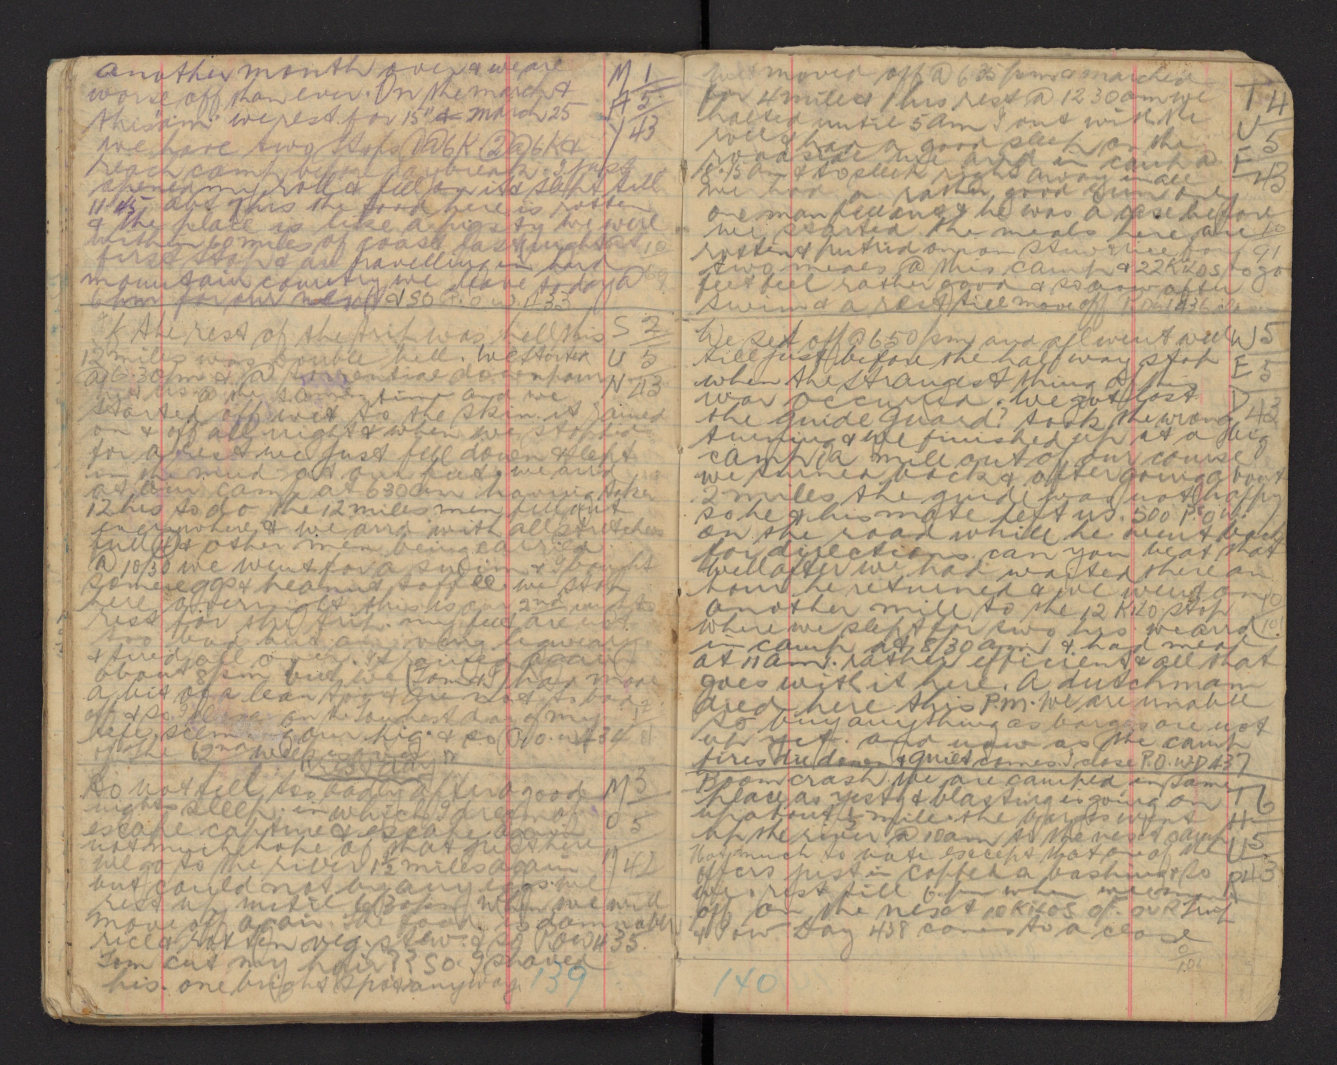 another month over & we are
worse off than ever. On the march &
this "aim" we rest for 15" & march 25
we have two stops 1 @ 6K 2 @ 6K &
reach camp before daybreak. I just
opened my roll & fell on it & slept till
11.45 abt this the food here is rotten
& the place is like a pigsty we were
within 60 miles of coast last night at
first stop & are travelling in hard
mountain country we leave today @
6pm for our next & so P.O.W. 433
M 1
A 5
Y 43
If the rest of the trip was hell this
12 miles was double hell. We started
@ 6.30pm & a torrential downpour
hit us @ the same time and we
started off wet to the skin it rained
on & off all night & when we stopped
for a rest we just fell down & slept
in the mud got our feet & we arrd
at our camp at 630am having taken
12 hrs to do the 12 miles men fell out
everywhere & we arrd with all stretchers
full & other men being carried
@ 10/30 we went for a swim & I bought
some eggs & peanut toffee we stop
here overnight this is our 2nd night
rest for the trip. my feet are not
too bad but am very leg weary
& tired all over. It rained again
about 8pm but we (Tom & I) had made
a bit of a lean too & are not to bad
off & so on the toughest day of my
life seems our hig. & so P.O.W. 434
of the 62nd week
S 2
U 5
N 43
Do not fell too badly after a good
nights sleep in which I dream of
escape capture & escape again
not much hope of that just here
we go to the river 1½ miles again
but could not buy any eggs. We
rest up until 6/30pm when we will
move off again. The food is damnable
rice & rotten veg. stew & so POW 435.
Tom cut my hair?? So I shaved
his. one bright spot anyway.
M 3
O 5
N 42
139
We moved off @ 6.35 pm & marched
for 4 miles & 1 hrs rest @ 12 30 am we
halted until 5 am I out with the
roll & had a good sleep on the
roadside we arrd in camp @
8.15 am & to sleep right away in all
we had a rather good trip only
one man fell out & he was a case before
we started the meals here are
rotten & putrid onion stew & rice
two meals @ this camp & 22 Kilos to go
feet feel rather good & so now after
swim & a rest till move off P.O.W 436 close
T 4
U 5
E 43
We set off @ 650 pm and all went well
till just before the half way stop
when the strangest thing of this
war occurred. We got lost
the guide guard? took the wrong
turning & we finished up at a big
camp 1 a mile out of our course
we turned back & after going about
2 miles the guide was not happy
so he & his mate left us. 500 P.O.W.
on the road while he went back
for directions. can you beat that
well after we had waited there an
hour he returned & we went on
another mile to the 12 Kilo stop
where we slept for two hrs we arrd
in camp at 8/30 am & had meal
at 11 am. rather efficient & all that
goes with it here. A dutchman
died here this P.M. We are unable
to buy anything as barges are not
up yet. and now as the camp
fires die down & quiet comes. close P.O.W.D 437
W 5
E 5
D 43
Boom crash We are camped in same
place as yesty & blasting is going on
up about ½ mile the barges went
up the river @ 10am to the next camp
Not much to note except that one of the
offcrs just in copped a bashing & so
we rest till 6 pm when we move
off on the next 10 Kilos of our trip
& POW Day 438 comes to a close
T 6
H 5
U 43
140